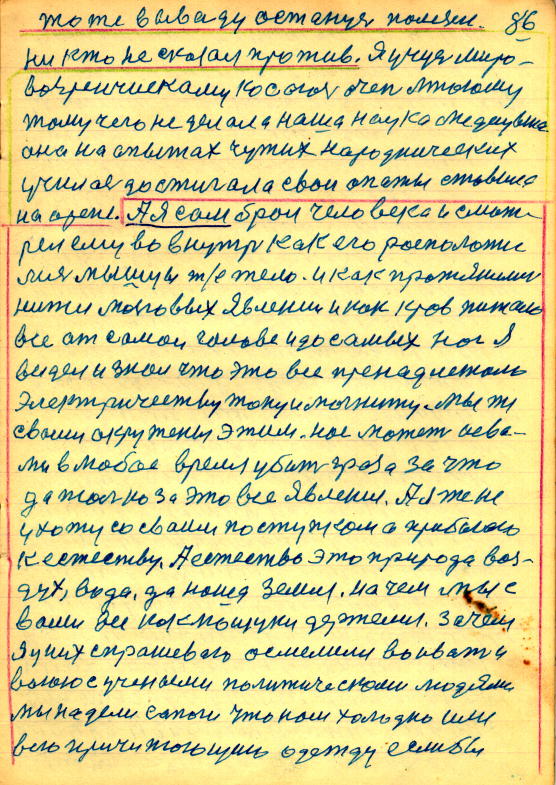 то те вываду останует помяли. 86
никто не сказал против. Я учуся миро-
воззренческаму
тому чего не делала наша наука медецына
она на опытах чужих народнических
училас достигала свои опыты ставила
на арене. А я сам брол человека и смот-
рел ему во внутр как его росположи
лис мышцы и т/е тело. и как протянули
нити мозговых явлении и как кров питало
все от самои голове и до самых ног я
видел и знол что это все пренадлежало
электричеству току и магниту. мы же
сваими окружены этим. нас может с ва-
ми в любое время убит гроза за что
да толко за это все явления. А я же не
ухожу со сваим поступком а прибегаю
к естеству. А естество это природа воз-
дух, вода, да наша земля. на чем мы с
вами все как держемся. Зачем
я у них спрашеваю осмелили воеват и
воюю с учеными политическими людями
мы надели сапоги что нам холодно или
в одежду еслибы